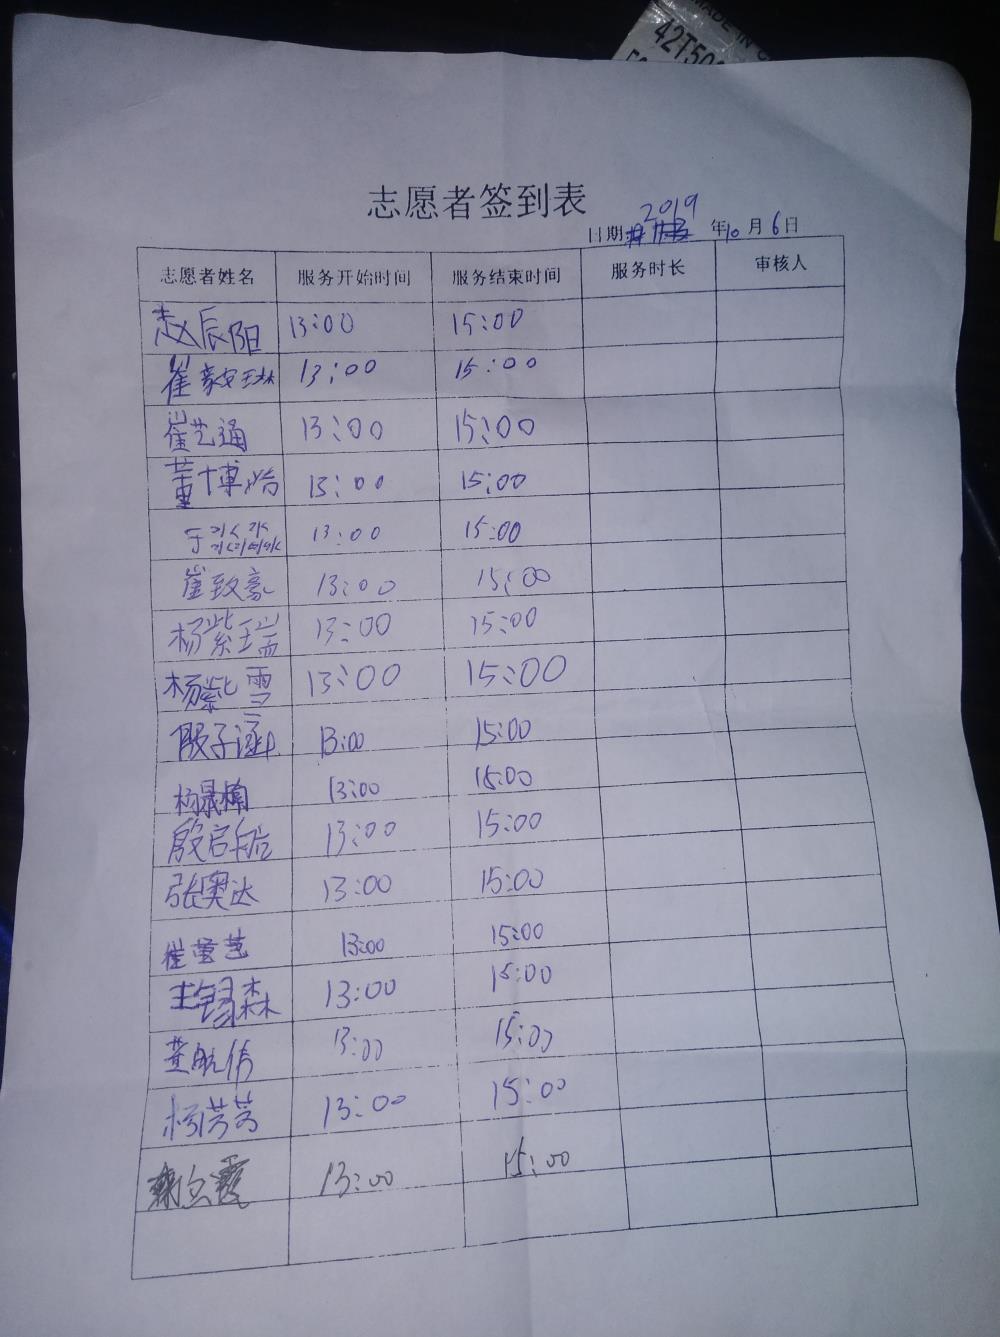 MADE IN C
42T50
志愿者签到表
2019
日期: 年10月6日
志愿者姓名 服务开始时间 服务结束时间 服务时长 审核人
赵辰阳 13:00 15:00
崔毅琳 13:00 15:00
崔艺通 13:00 15:00
董博怡 13:00 15:00
于 13:00 15:00
崔致豪 13:00 15:00
杨紫瑞 13:00 15:00
杨紫雪 13:00 15:00
殷子涵 13:00 15:00
杨晟楠 13:00 15:00
殷启航 13:00 15:00
张奥达 13:00 15:00
崔莹艺 13:00 15:00
王锡森 13:00 15:00
董航信 13:00 15:00
杨芳芳 13:00 15:00
霞 13:00 15:00